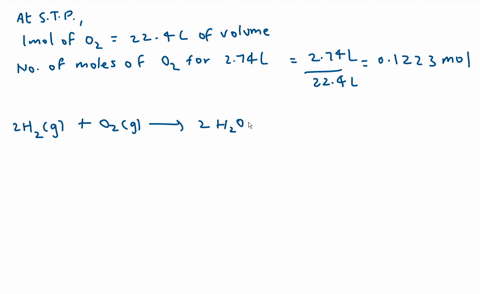 At S.T.P.,
1mol of O₂ = 22.4L of volume
No. of moles of O₂ for 2.74L = 2.74L / 22.4L = 0.1223 mol
2H₂(g) + O₂(g) ⟶ 2 H₂O